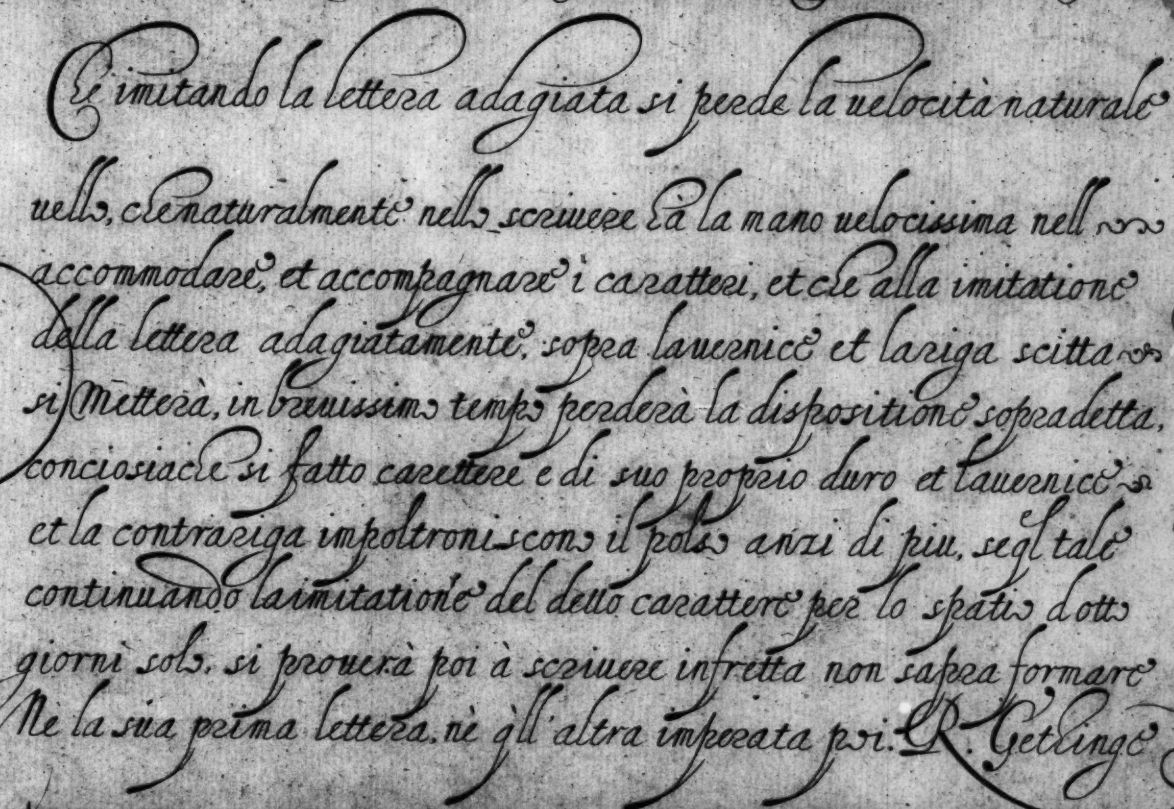 Che imitando la lettera adagiata si perde la velocità naturale
uello, che naturalmente nello scriuere hà la mano uelocissima nell
accommodare, et accompagnare i caratteri, et che alla imitatione
della lettera adagiatamente, sopra lauernice et lariga scitta
si Metterà, in breuissimo tempo perderà la dispositione sopradetta,
conciosiache si fatto carettere e di suo proprio duro et lauernice
et la contrariga impoltroniscono il polso anzi di piu, seql tale
continuando laimitatione del detto carattere per lo spatio dotto
giorni solo, si prouerà poi à scriuere infretta non sapra formare
Nè la sua prima lettera, nè qll'altra imperata poi. R. Gethinge